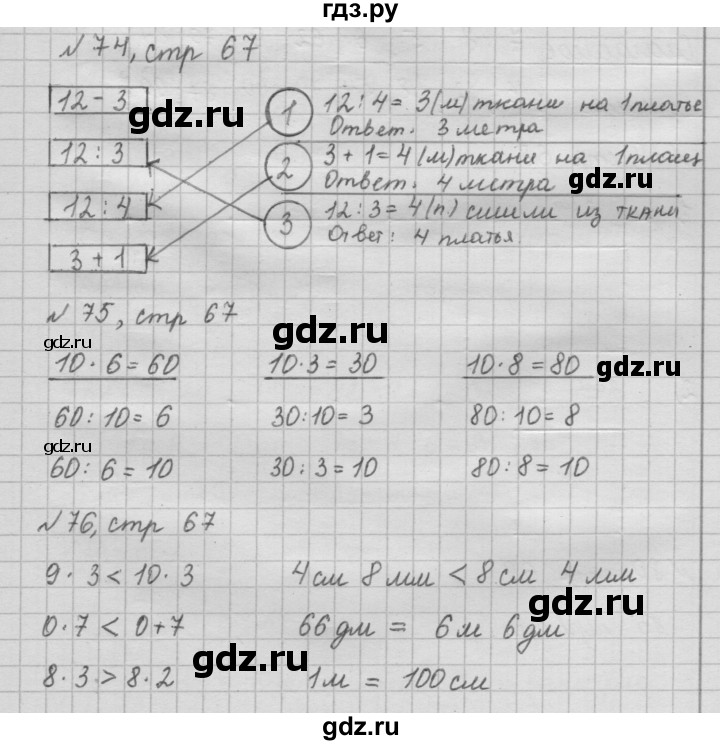 гдз.ру
№ 74, стр 67
12 - 3
12 : 3
12 : 4
3 + 1
1 12 : 4 = 3 (м) ткани на 1 платье
Ответ. 3 метра
2 3 + 1 = 4 (м) ткани на 1 плащ
Ответ. 4 метра
3 12 : 3 = 4 (п) сшили из ткани
Ответ: 4 платья.
№ 75, стр 67
10 · 6 = 60 10 · 3 = 30 10 · 8 = 80
60 : 10 = 6 30 : 10 = 3 80 : 10 = 8
60 : 6 = 10 30 : 3 = 10 80 : 8 = 10
№ 76, стр 67
9 · 3 < 10 · 3 4 см 8 мм < 8 см 4 мм
0 · 7 < 0 + 7 66 дм = 6 м 6 дм
8 · 3 > 8 · 2 1 м = 100 см
gdz.ru
gdz.ru
gdz.ru
gdz.ru
gdz.ru
gdz.ru
gdz.ru
gdz.ru
gdz.ru
gdz.ru